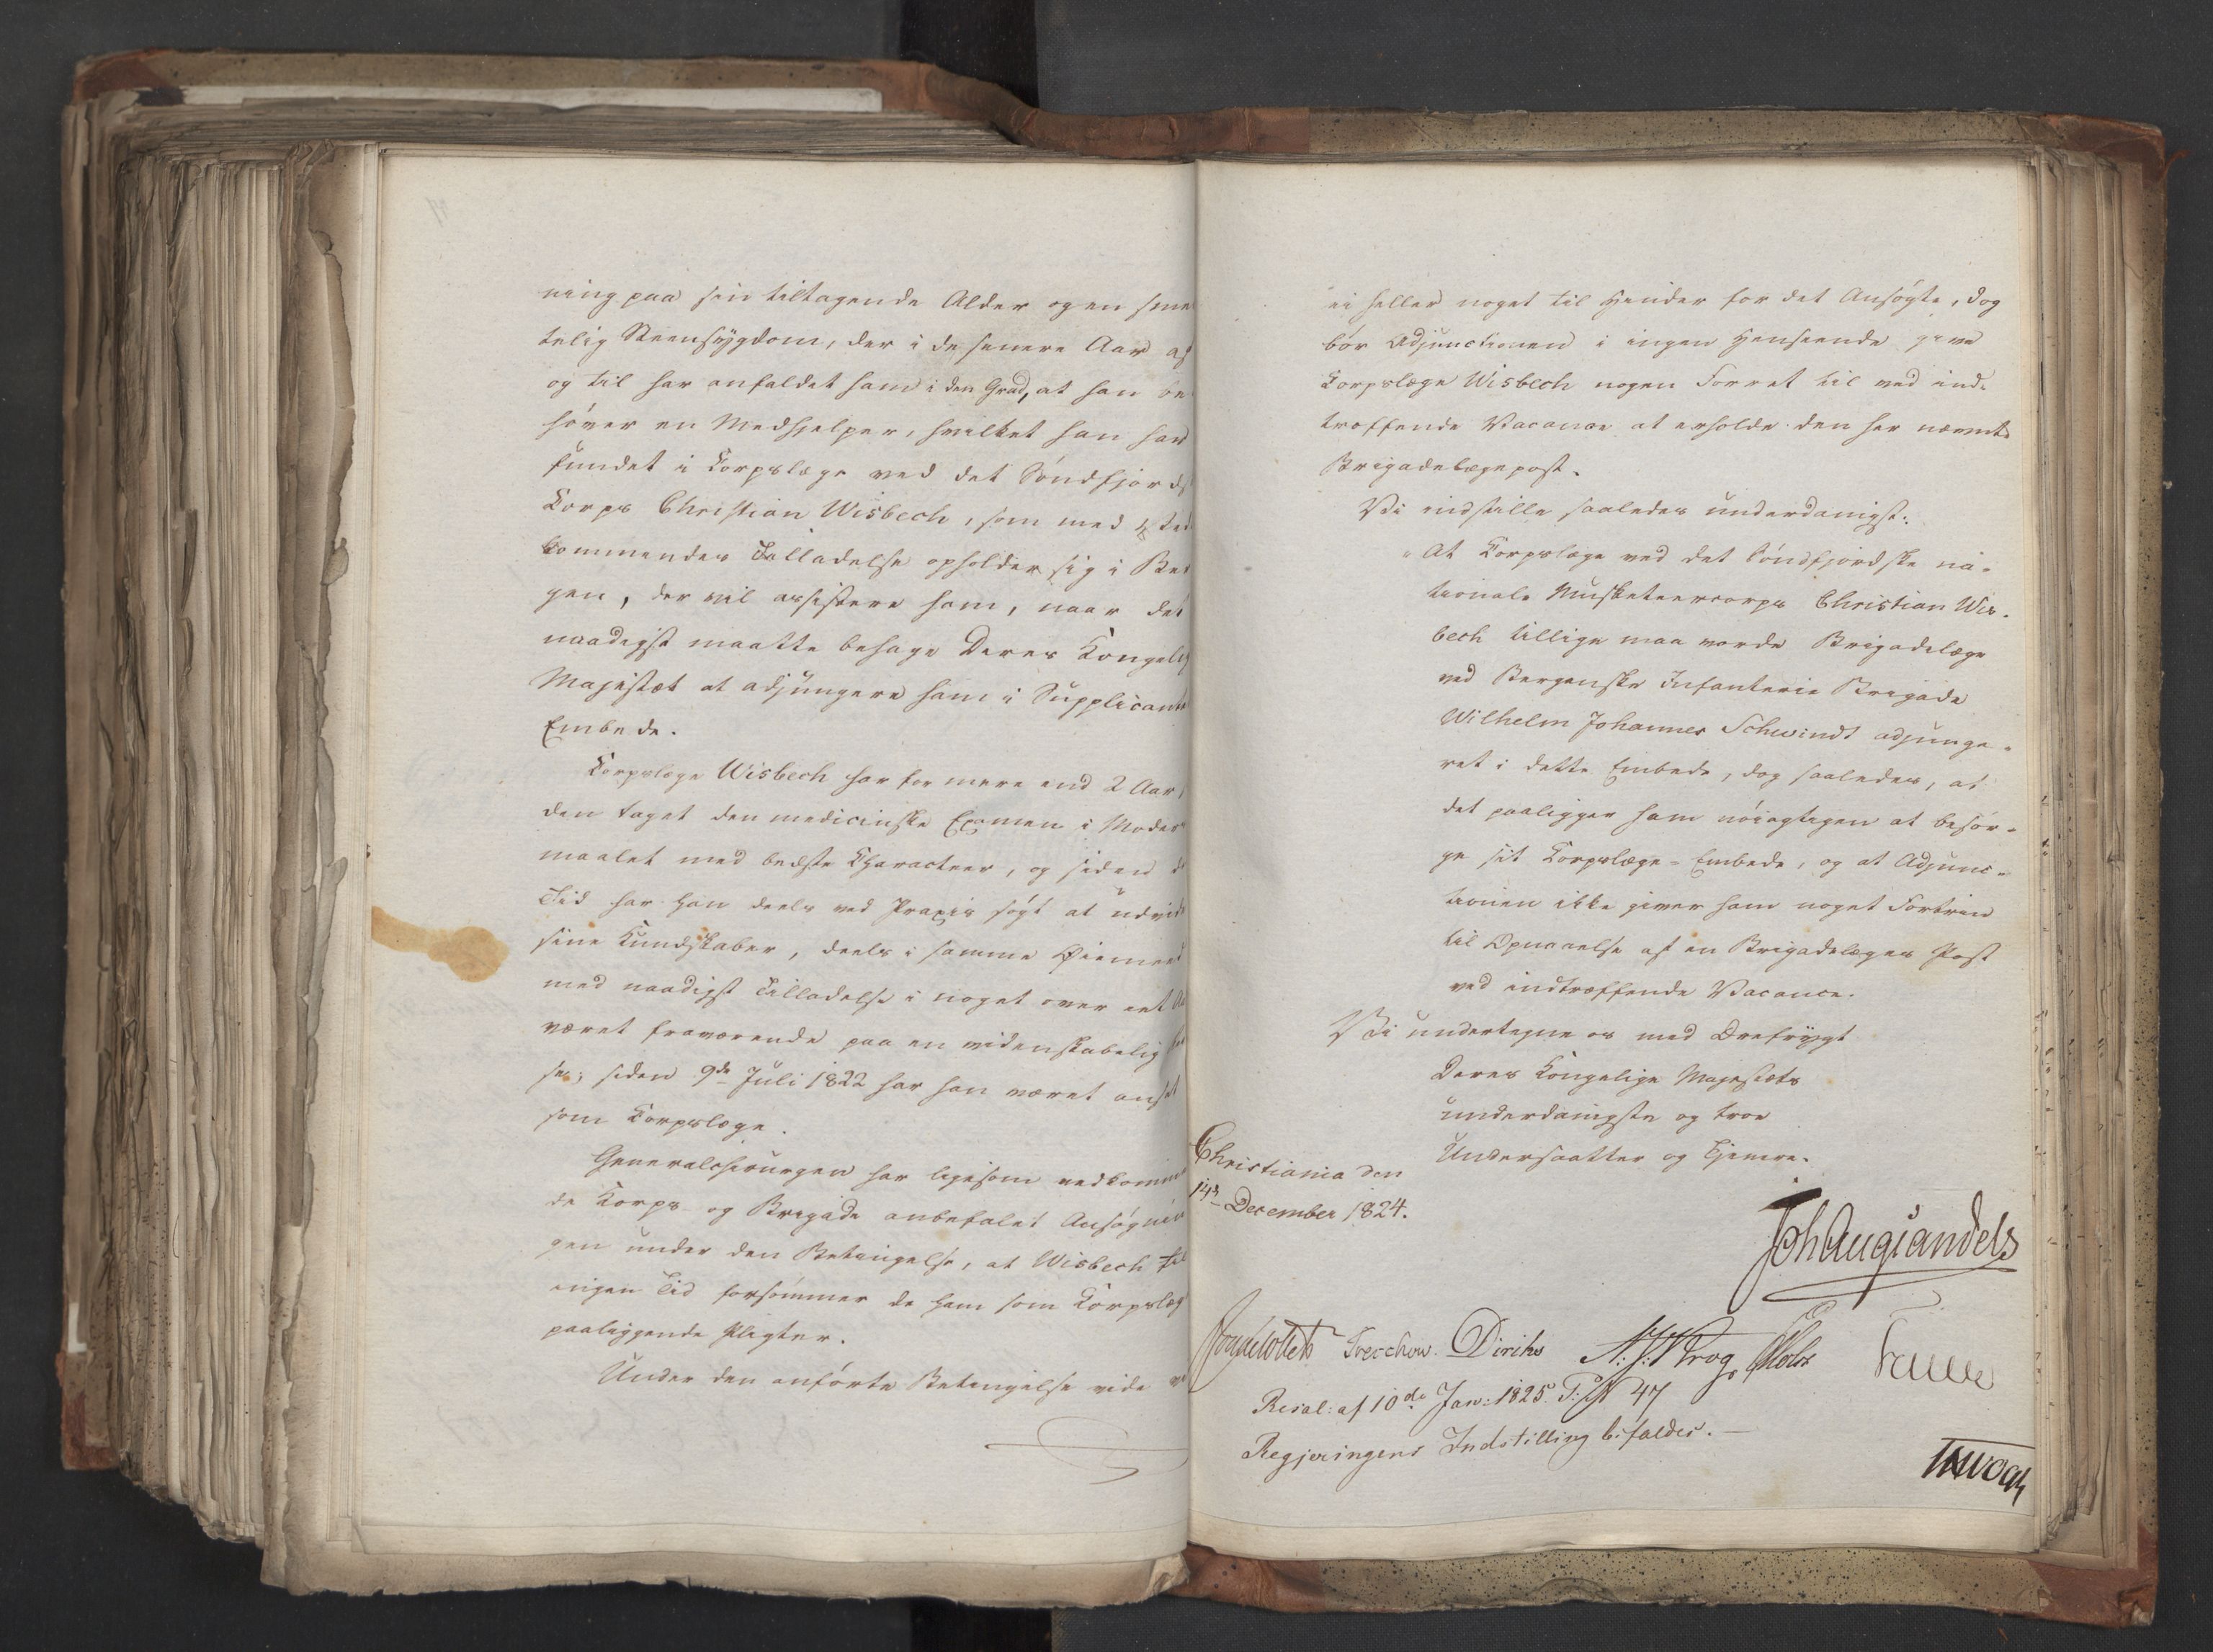 ning paa sin tiltagende Alder og en smer
telig Steensygdom, der i de senere Aar af
og til har anfaldet ham i den Grad, at han be
høver en Medhjelper, hvilket han har
fundet i Corpslæge ved det Søndfjords
Corps Christian Wisbech, som med ved
kommendes Tilladelse opholder sig i Ber
gen, der vil assistere ham, naar det
naadigst maatte behage Deres Kongelig
Majestæt at adjungere ham i Supplicante
Embede.
Corpslæge Wisbech har for mere end 2 Aar
den taget den medicinske Examen i Moders
maalet med bedste Characteer, og siden d
Tid har han deels ved Praxis søgt at udvide
sine Kundskaber, deels i samme Øiemeed
med naadigst Tilladelse i noget over eet Aa
været fraværende paa en videnskabelig Rei
se; siden 9de Juli 1822 har han været ansat
som Corpslæge.
Generalchirurgen har ligesom vedkommen
de Corps- og Brigade anbefalet Ansøgnin
gen under den Betingelse, at Wisbech til
ingen Tid forsømmer de ham som Corpslæg
paaliggende Pligter.
Under den anførte Betingelse vide vi
ei heller noget til Hinder for det Ansøgte, dog
bør Adjunctionen i ingen Henseende give
Corpslæge Wisbech nogen Forret til ved ind-
træffende Vacance at erholde den her nævnte
Brigadelægepost.
Vi indstille saaledes underdanigst:
"At Corpslæge ved det Søndfjordske na-
tionale Musketeercorps Christian Wis-
bech tillige maa vorde Brigadelæge
ved Bergenske Infanterie Brigade
Wilhelm Johannes Schwindt adjunge-
ret i dette Embede, dog saaledes, at
det paaligger ham nøiagtigen at besør-
ge sit Corpslæge-Embede, og at Adjunc-
tionen ikke giver ham noget Fortrin
til Opnaaelse af en Brigadelæges Post
ved indtræffende Vacance.
Vi undertegne os med Ærefrygt
Deres Kongelige Majestæts
underdanigste og troe
Undersaatter og Tjenere.
Christiania den
14d December 1824.
Joh Aug Sandels
Treschow. Diriks N: J: Krog
Resol: af 10de Jan: 1825. P: N 47
Regjeringens Indstilling bifaldes. —